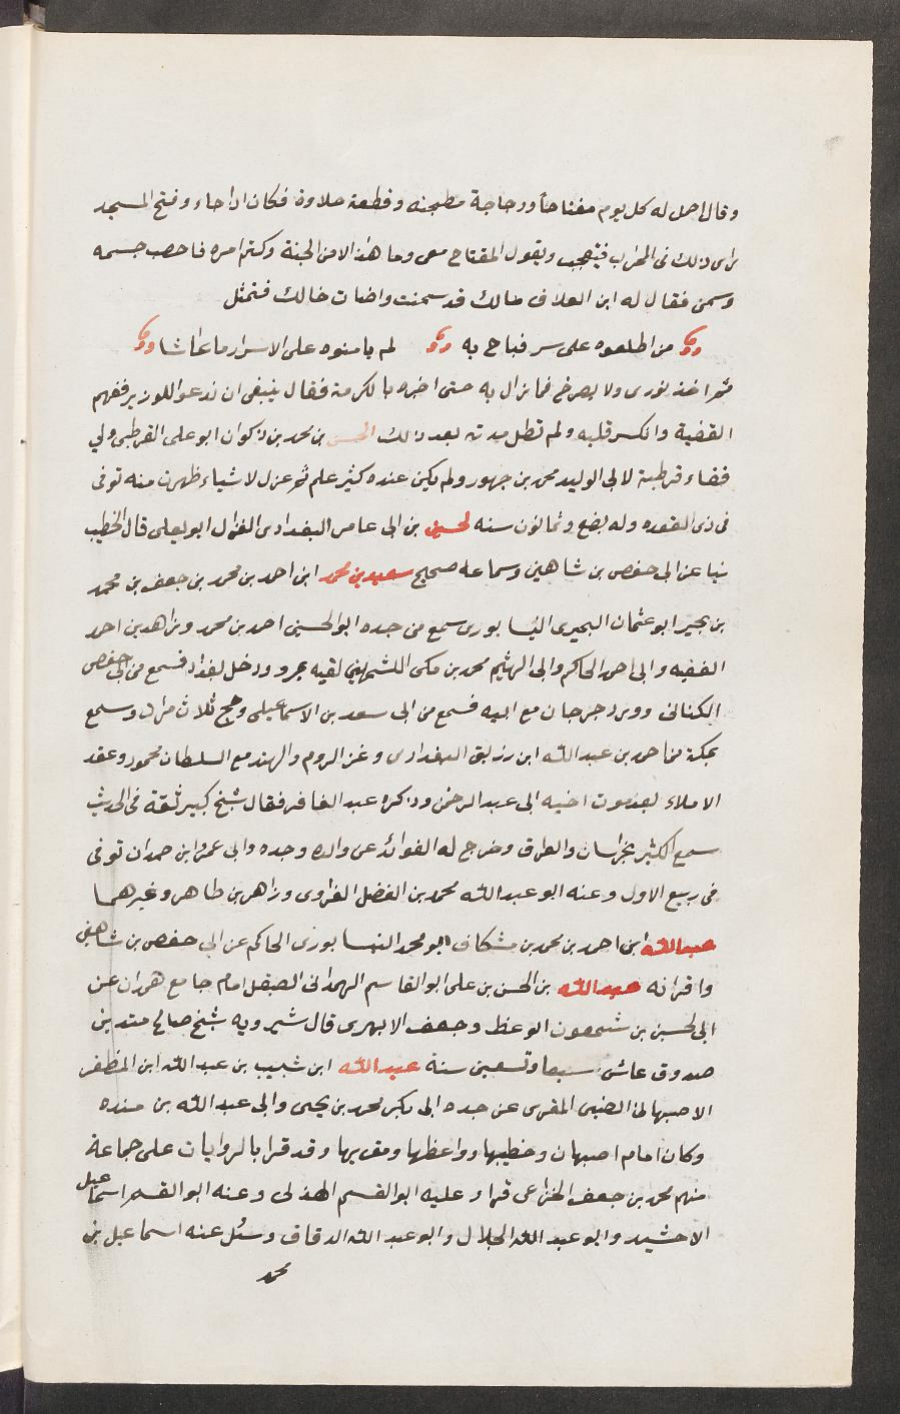 وقال احمل له كل يوم مفتاحا ودجاجة مطجنه وقطعة حلاوة فكان اذا جاء وفتح المسجد
راى ذلك فى المحراب فيتعجب ويقول المفتاح معى وما هذا الا من الجنة وكتم امره فاخصب جسمه
وسمن فقال له ابن العلاف مالك قد سمنت واضات حالك فتمثل
من اطلعوه على سر فباح به لم يامنوه على الاسرار ما عاشا
ثم اخذ يورى ولا يصرح فما زال به حتى اخبره بالكرمة فقال ينبغى ان ندعو للوزير ففهم
القضية وانكسر قلبه ولم تطل مدته بعد ذلك الحسن بن محمد بن ذكوان ابو على القرطبى ولي
قضاء قرطبة لابى الوليد محمد بن جهور ولم يكن عنده كثير علم ثم عزل لاشياء ظهرت منه توفى
فى ذى القعده وله بضع وثمانون سنه لحسين بن ابى عامر البغدادى الغزال ابو يعلى قال الخطيب
ثنا عن ابى حفص بن شاهين وسماعه صحيح سعيد بن محمد ابن احمد بن محمد بن جعفر بن محمد
بن بحير ابو عثمان البحيرى النيسابورى سمع من جده ابو الحسين احمد بن محمد وزاهد بن احمد
الفقيه وابى احمد الحاكم وابى الهيثم محمد بن مكى الكشمهينى لقيه بمرو ودخل بغداد فسمع من ابى حفص
الكنانى وورد جرجان مع ابيه فسمع من ابى سعد بن الاسماعيلى وحج ثلاث مرات وسمع
بمكة من احمد بن عبد الله ابن رزيق البغدادى وغز الروم والهند مع السلطان محمود وعقد
الاملاء بعد موت اخيه ابى عبد الرحمن وذكره عبد الغافر فقال شيخ كبير ثقة فى الحديث
سمع الكثير بخراسان والعراق وخرج له الفوائد عن والده وجده وابى عمرو ابن حمدان توفى
فى ربيع الاول وعنه ابو عبد الله محمد بن الفضل الفراوى وزاهر بن طاهر وغيرهما
عبد الله ابن احمد بن محمد بن مشكاف ابو محمد النيسابورى الحاكم عن ابى حفص بن شاهين
واقرانه عبد الله بن الحسن بن على ابو القاسم الهمدانى الصيقل امام جامع همدان عن
ابى لحسين بن شمعون الوعظ وجعفر الابهرى قال شيرويه شيخ صالح متدين
صدوق عاش سبعا وتسعين سنة عبد الله ابن شبيب بن عبد الله ابن المظفر
الاصبهانى الضبى المقرى عن جده ابى بكر محمد بن يحيى وابى عبد الله بن منده
وكان امام اصبهان وخطيبها وواعظها ومقريها وقد قرا بالروايات على جماعة
منهم محمد بن جعفر الخزاعى قرا عليه ابو القسم الهذلى وعنه ابو القسم اسماعيل
الاخشيد وابو عبد الله الخلال وابو عبد الله الدقاق وسئل عنه اسماعيل بن
محمد